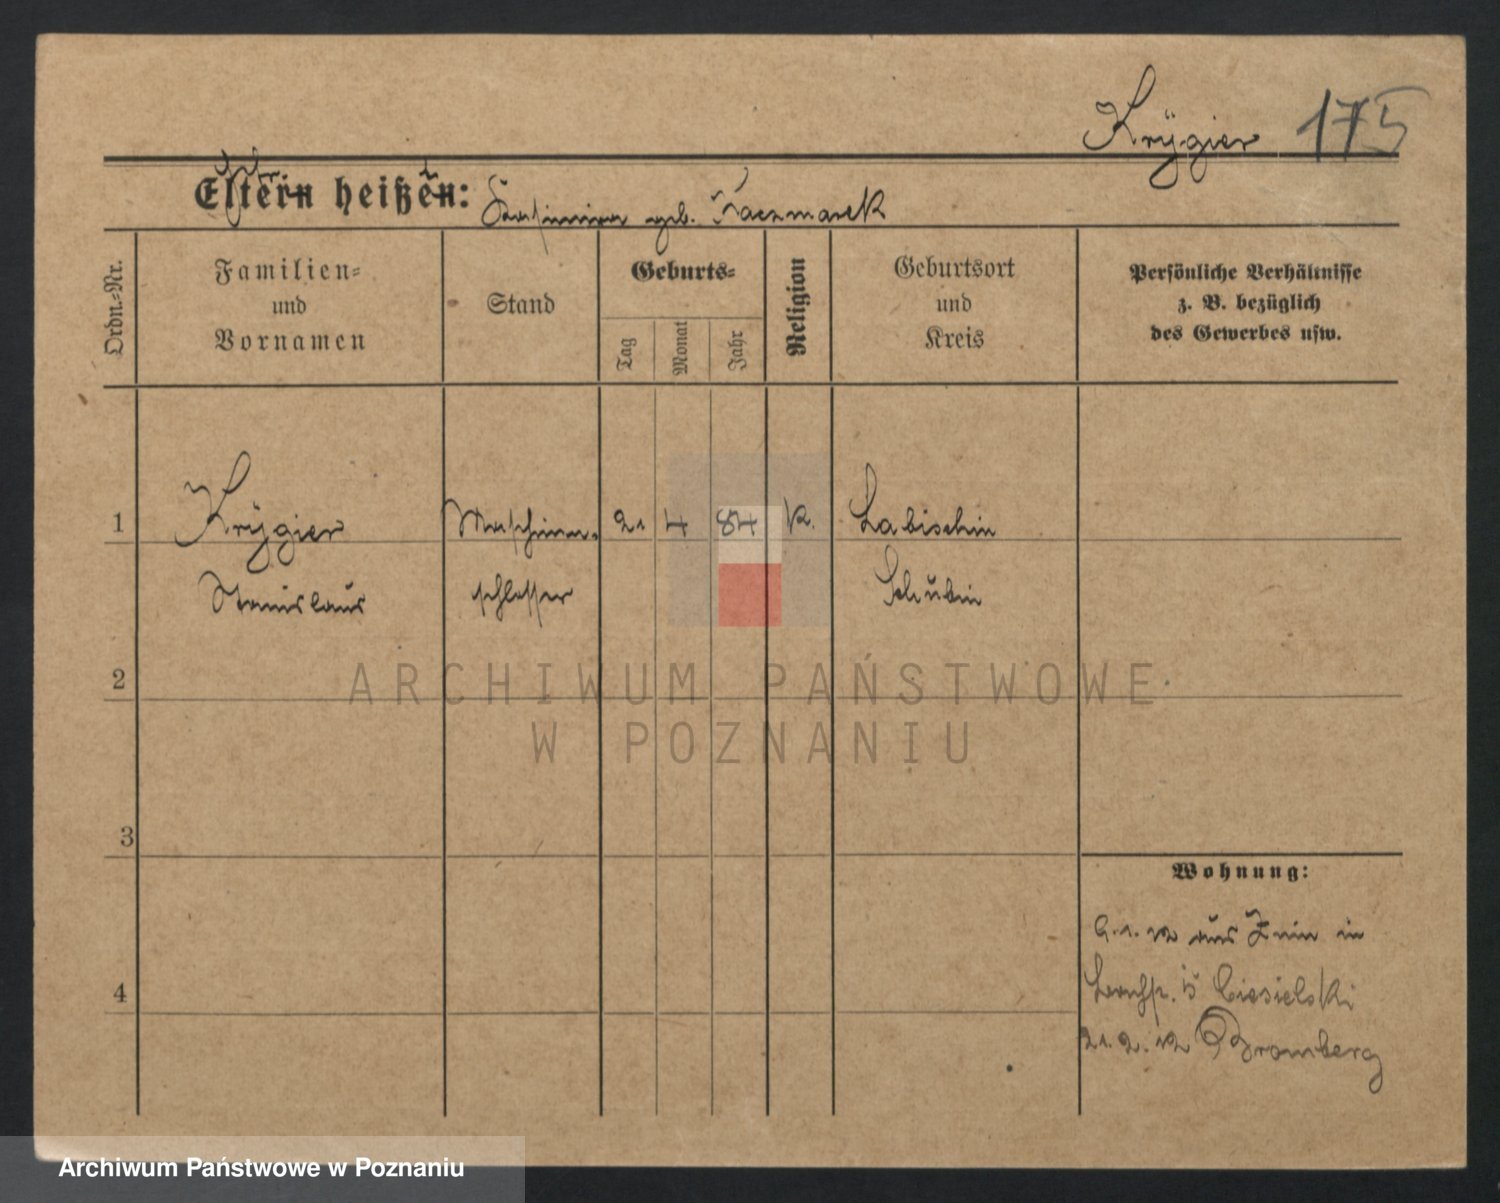 Krÿgier 175
Eltern heißen: Kasimira geb. Kaczmarek
Ordn.-Nr.
Familien-
und
Vornamen
Stand
Geburts-
Tag
Monat
Jahr
Religion
Geburtsort
und
Kreis
Persönliche Verhältnisse
z. B. bezüglich
des Gewerbes usw.
1 Krÿgier Maschinen- 21 4 84 k. Labischin
Stanislaus schlosser Schubin
2
ARCHIWUM PAŃSTWOWE
W POZNANIU
3
Wohnung:
9.1.12 aus Znin in
Ciesielski
4
21.2.12 Bromberg
Archiwum Państwowe w Poznaniu